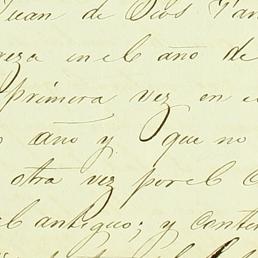 Juan de Dios
en el año de
primera vez en
año y que no
otra vez por el
el antiguo; y